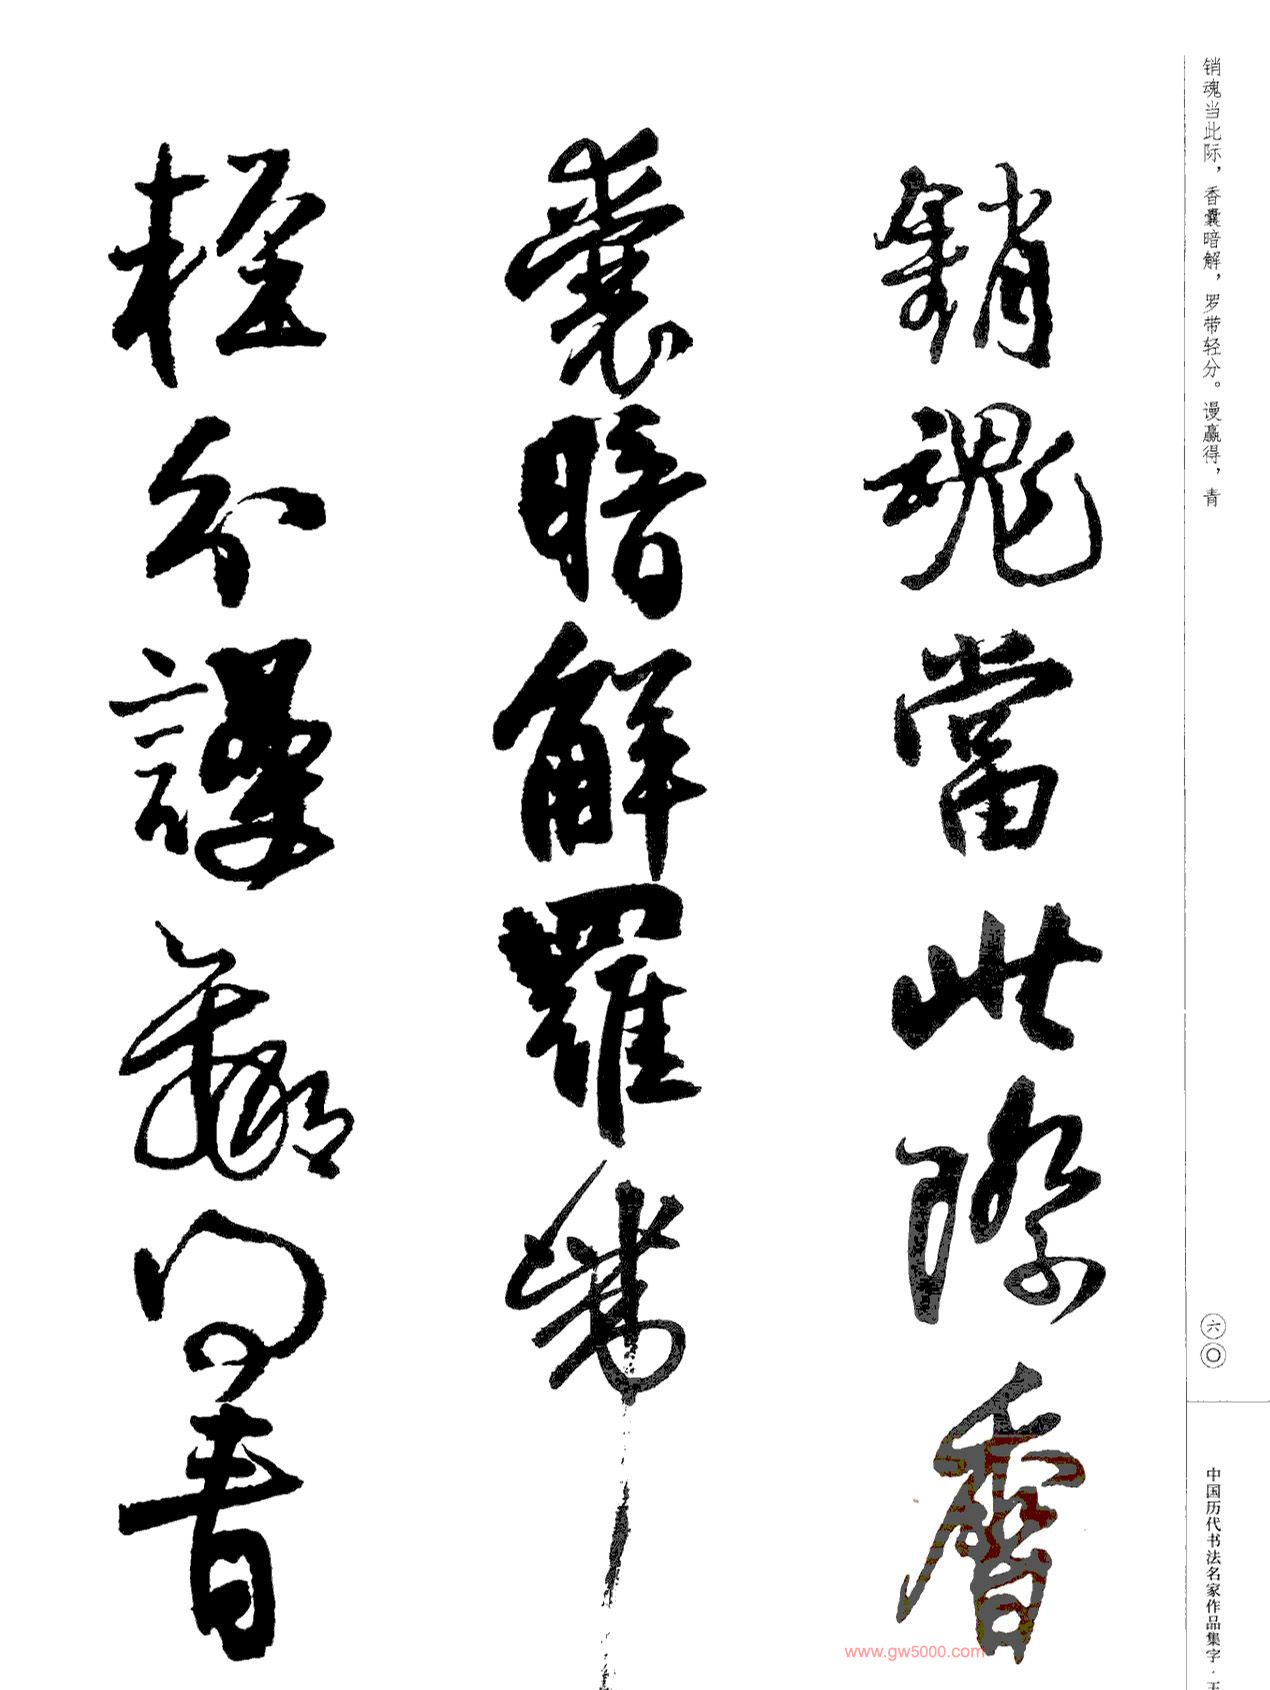 销魂当此际，香囊暗解，罗带轻分。谩赢得，青
六〇
中国历代书法名家作品集字·王
銷魂當此際香
囊暗解羅帶
輕分謾贏得青
www.gw5000.com